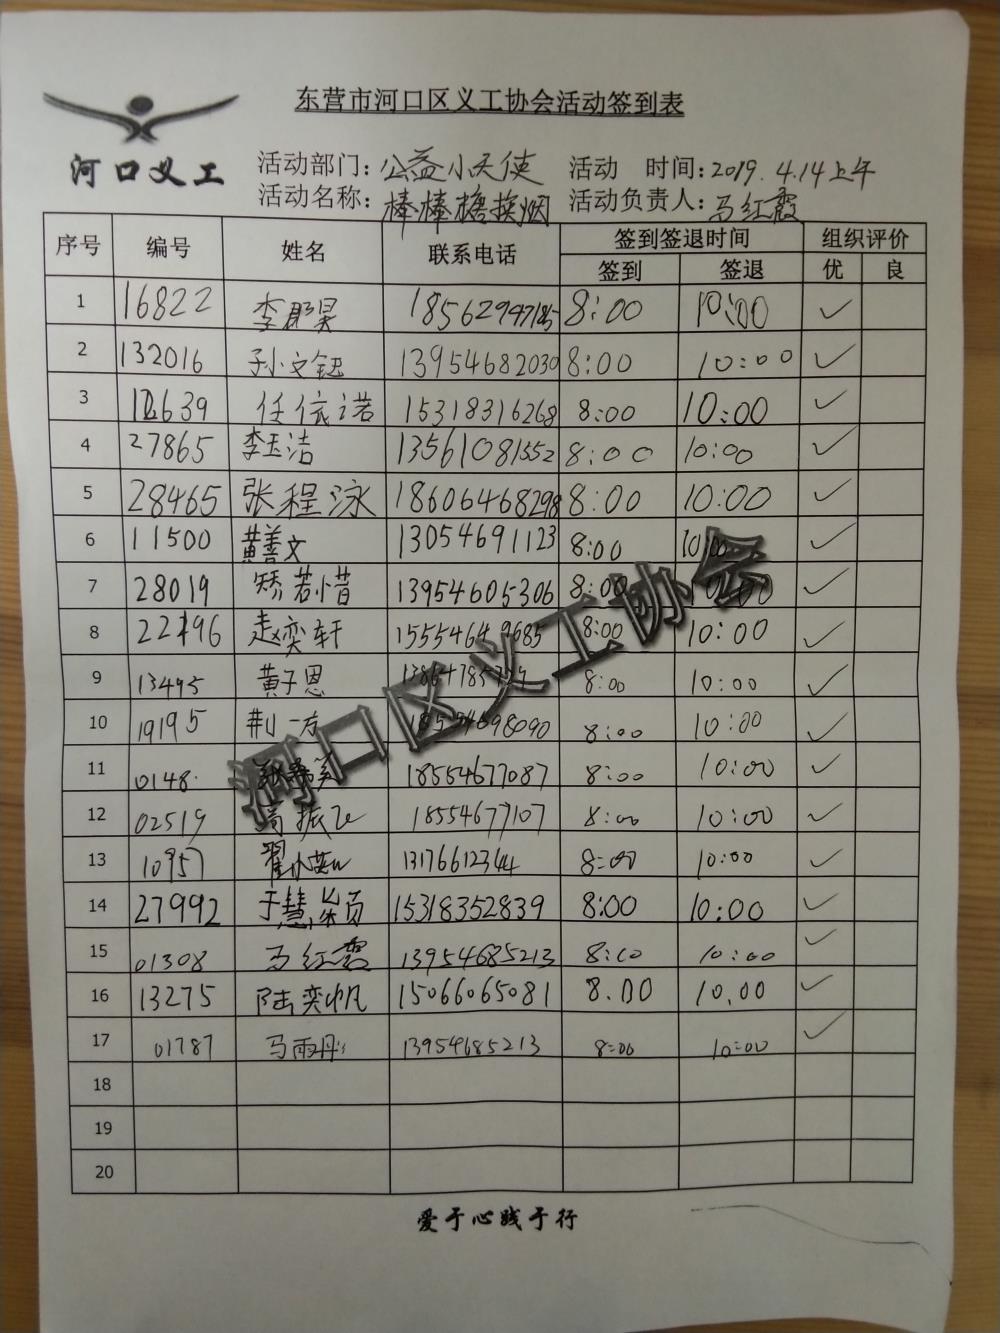 东营市河口区义工协会活动签到表
河口义工
活动部门：公益小天使 活动 时间：2019.4.14上午
活动名称：棒棒糖换烟 活动负责人：马红霞
序号 编号 姓名 联系电话 签到签退时间 组织评价
签到 签退 优 良
1 16822 李郡昊 18562947185 8:00 10:00 ✓
2 132016 孙文钰 13954682030 8:00 10:00 ✓
3 639 任依诺 15318316268 8:00 10:00 ✓
4 27865 李玉洁 13561081552 8:00 10:00 ✓
5 28465 张程泳 18606468298 8:00 10:00 ✓
6 11500 黄善文 13054691123 8:00 10:00 ✓
7 28019 矫若惜 13954605306 8:00 10:00 ✓
8 22196 赵奕轩 15554649685 8:00 10:00 ✓
9 13495 黄子恩 8:00 10:00 ✓
10 19195 荆一方 18554698090 8:00 10:00 ✓
11 0148 18554677087 8:00 10:00 ✓
12 02519 振飞 18554677107 8:00 10:00 ✓
13 10957 翟小英 13176612344 8:00 10:00 ✓
14 27992 于慧 15318352839 8:00 10:00 ✓
15 01308 马红霞 13954685213 8:00 10:00 ✓
16 13275 陆奕帆 15066065081 8.00 10.00 ✓
17 01787 马雨彤 13954685213 8:00 10:00 ✓
18
19
20
河口区义工协会
爱于心践于行